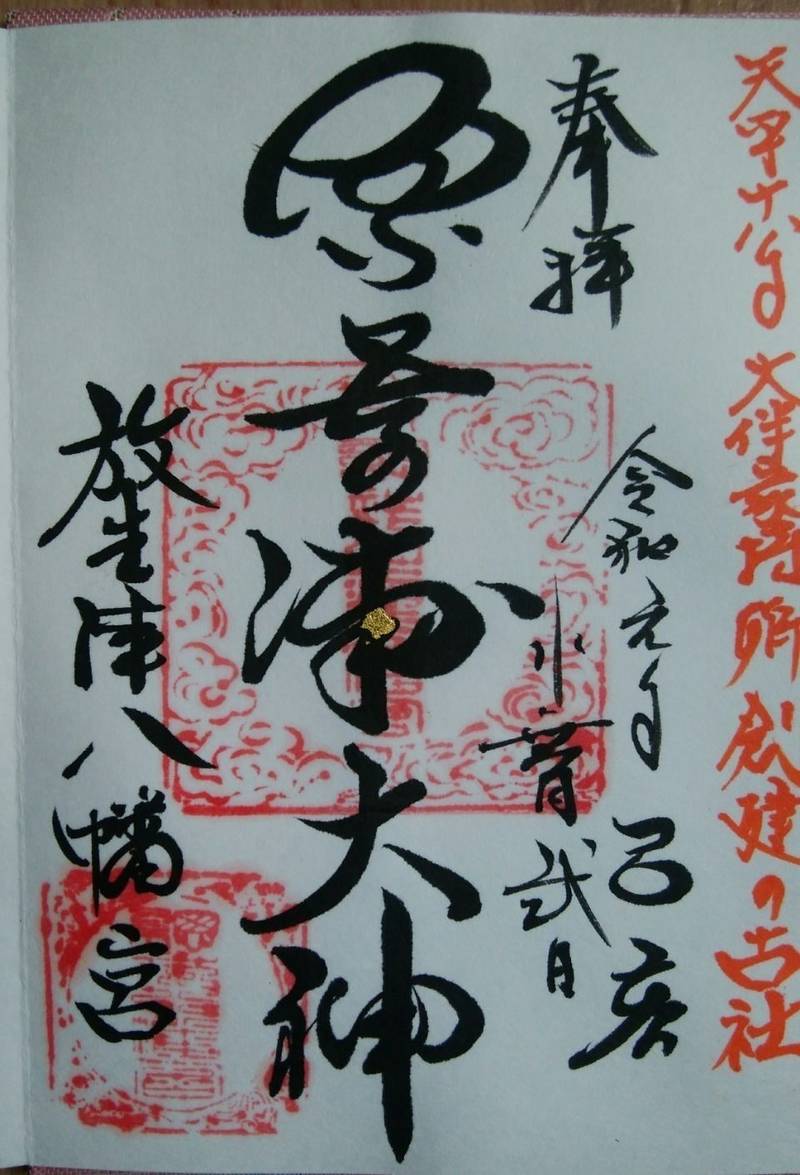 天平十八年 大伴家持卿創建の古社
奉拝
令和元年 己亥
水無月 弐日
奈呉の浦大神
放生津八幡宮